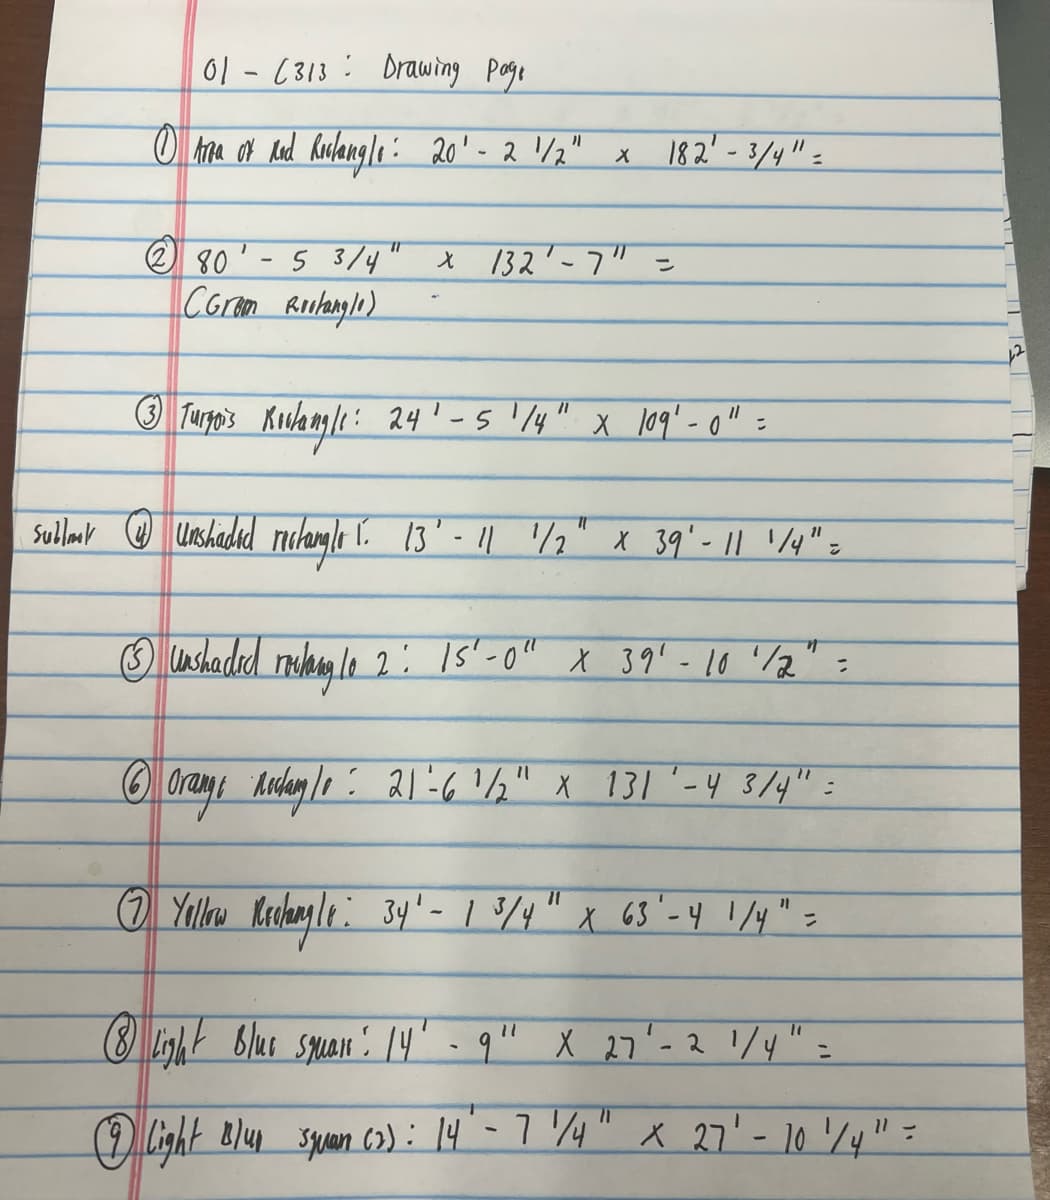 01 - C313 : Drawing Page
① Area of Red Rectangle : 20' - 2 1/2" x 182' - 3/4" =
② 80' - 5 3/4" x 132' - 7" =
(Green Rectangle)
③ Turqois Rectangle : 24' - 5 1/4" x 109' - 0" =
④ Unshaded rectangle 1: 13' - 11 1/2" x 39' - 11 1/4" =
⑤ Unshaded rectangle 2 : 15' - 0" x 39' - 10 1/2" =
⑥ Orange Rectangle : 21' - 6 1/2" x 131' - 4 3/4" =
⑦ Yellow Rectangle : 34' - 1 3/4" x 63' - 4 1/4" =
⑧ Light Blue square : 14' - 9" x 27' - 2 1/4" =
⑨ Light Blue square (2) : 14' - 7 1/4" x 27' - 10 1/4" =